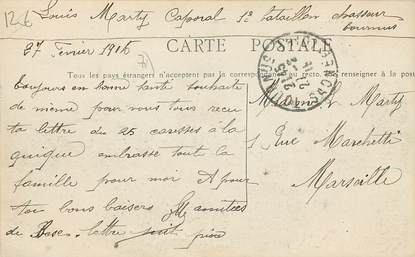 Louis Marty Caporal 1e bataillon chasseur
27 Fevrier 1916
CARTE POSTALE
Tous les pays étrangers n'acceptent pas la correspondance au recto. (Se renseigner à la poste
Toujours en bonne santé souhaite
de même pour vous tous recu
ta lettre du 25 causses à la
quique embrasse tout la
famille pour moi A pour
toi bons baisers amitiées
de lettre suit
Madame Marty
1 Rue Marchetti
Marseille